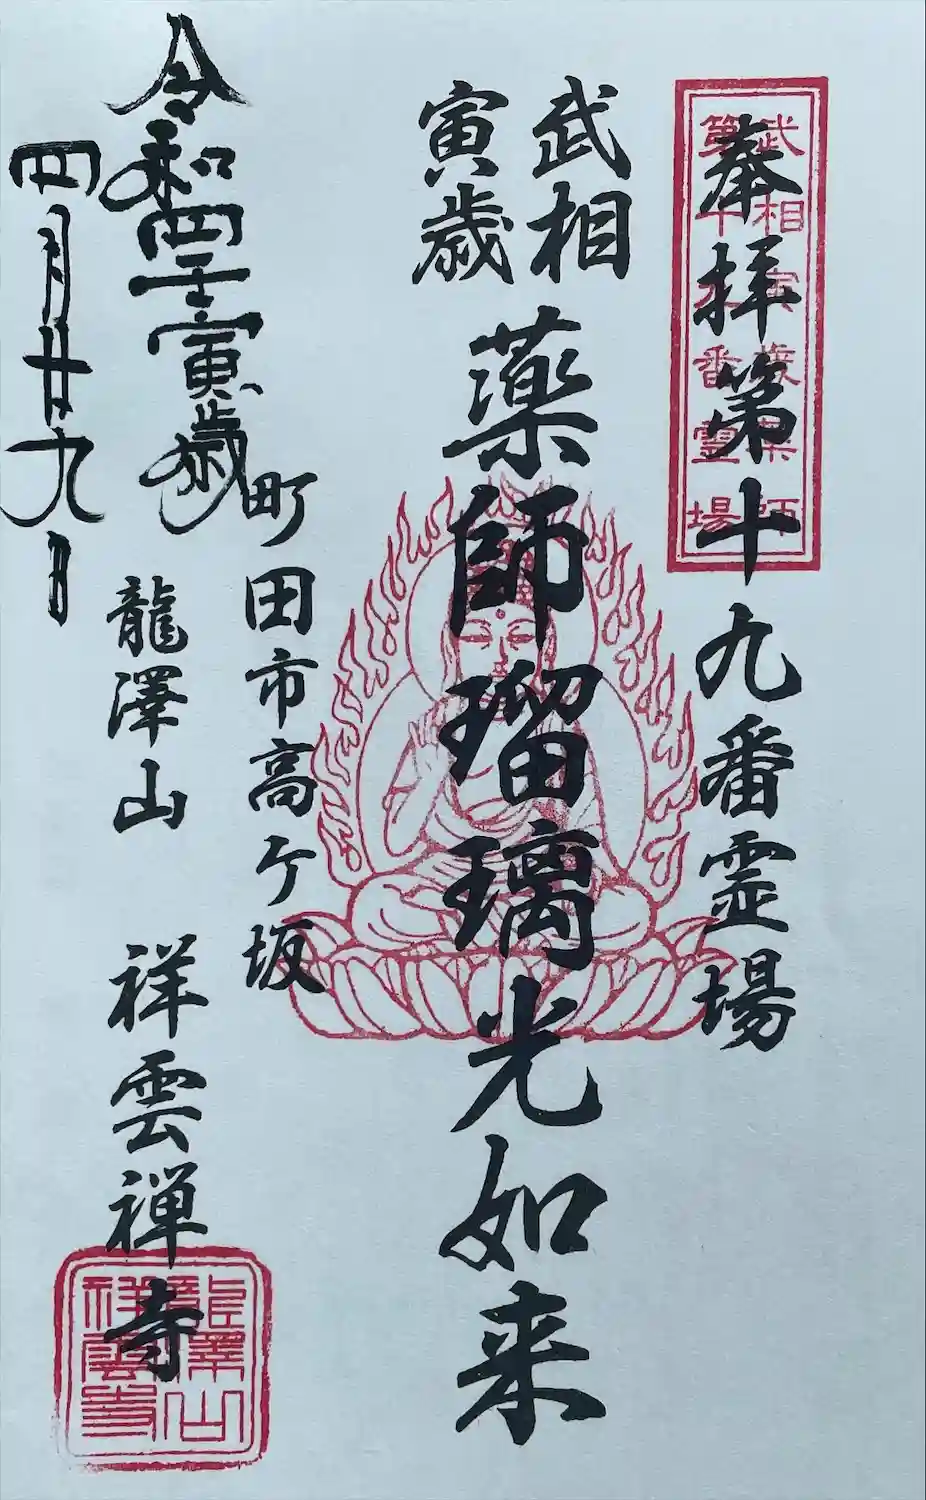 奉拝第十九番霊場
武相寅歳薬師
第十九番霊場
武相
寅歳
薬師瑠璃光如来
町田市高ヶ坂
龍澤山 祥雲禅寺
龍澤山
祥雲寺
令和四壬寅歳
四月廿九日